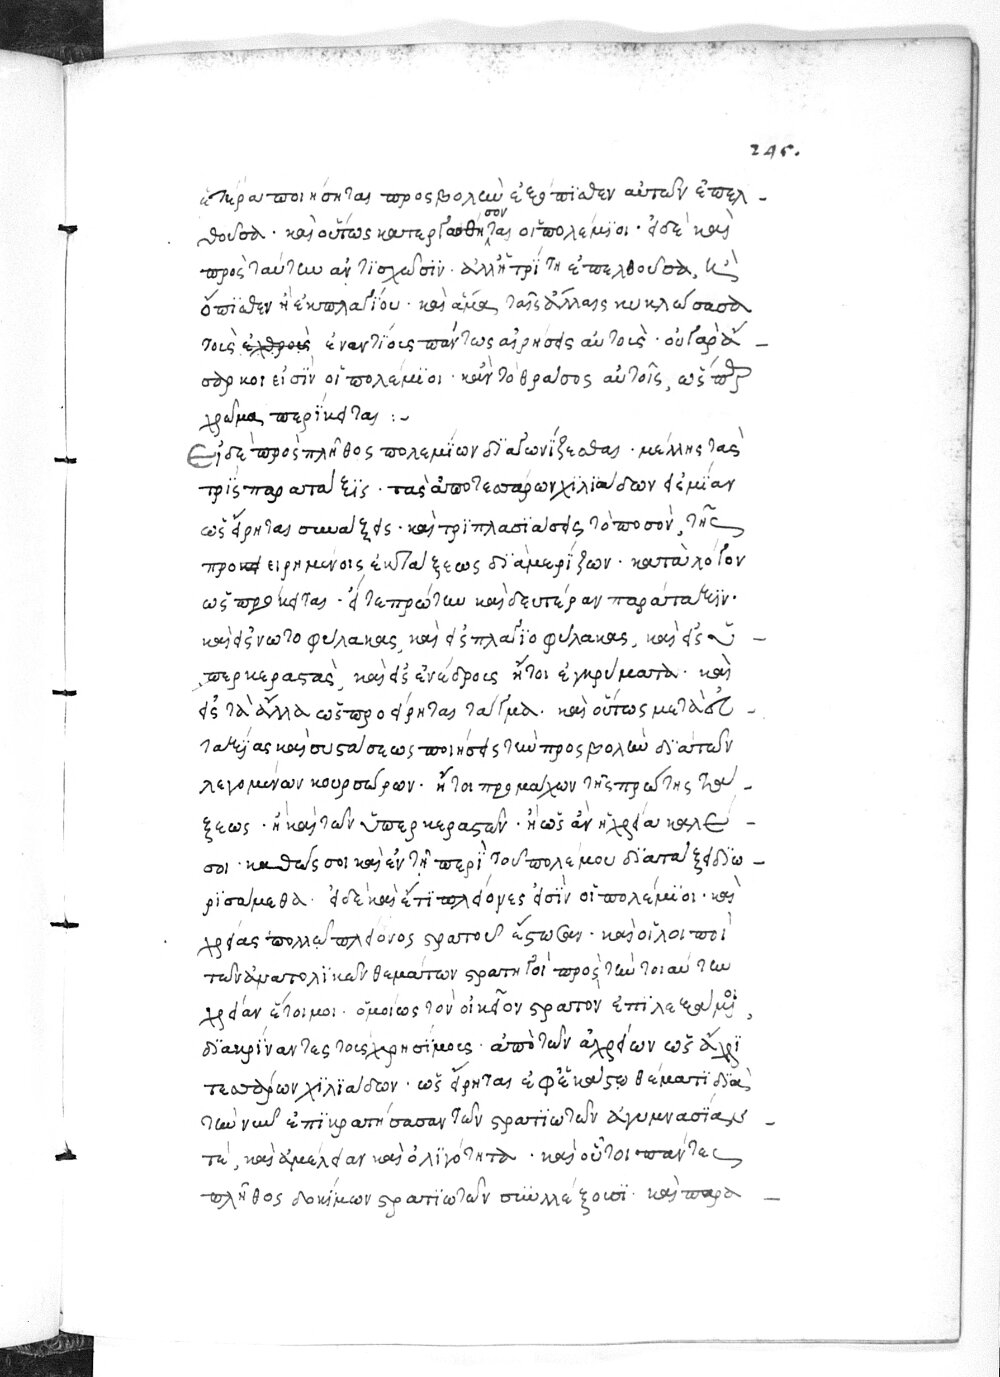 245.
ἑτέρα ποιήσηται προσβολὴν ἐξόπϊσθεν αὐτῶν ἐπελ-
θοῦσα. καὶ οὕτως κατεργασθήσονται οἱ πολέμϊοι. εἰ δὲ καὶ
πρὸς ταύτην ἀντϊσχῶσϊν. ἀλλ' ἡ τρίτη ἐπελθοῦσα, ἢ
ὄπϊσθεν ἢ ἐκ πλαγίου. καὶ ἅμα ταῖς ἄλλαις κυκλώσασα
τοῖς ἐχθροῖς ἐναντίοις πάντως αἱρήσεις αὐτούς. οὐ γὰρ ἄ-
σαρκοι εἰσὶν οἱ πολέμϊοι. κἂν τὸ θράσος αὐτοῖς, ὡς
χρῶμα περίκειται :-
Εἰ δὲ πρὸς πλῆθος πολεμίων δϊαγωνίζεσθαι. μέλλῃς τὰς
τρεῖς παρατάξεις. τὰς ἀπὸ τεσσάρων χιλιάδων εἰς μίαν
ὡς εἴρηται συνάξεις. καὶ τρϊπλασϊάσεις τὸ ποσὸν, τῆς
προ ειρημένης ἐκτάξεως δϊαμερίζων. κατὰ λόγον
ὡς πρόκειται. εἴς τε πρώτην καὶ δευτέραν παράταξϊν.
καὶ εἰς νωτοφύλακας, καὶ εἰς πλαγϊοφύλακας, καὶ εἰς ὑ-
περκεραστὰς, καὶ εἰς ἐνέδρους ἤτοι ἐγκρύματα. καὶ
εἰς τὰ ἄλλα ὡς προείρηται τάγματα. καὶ οὕτως μετὰ εὐ-
ταξίας καὶ συστάσεως ποιήσεις τὴν προσβολὴν δϊὰ τῶν
λεγομένων κουρσώρων. ἤτοι προμάχων τῆς πρώτης τά-
ξεως. ἢ καὶ τῶν ὑπερκεραστῶν. ἢ ὡς ἂν ἡ χρεία καλέ-
σοι. καθώς σοι καὶ ἐν τῇ περὶ τοῦ πολέμου δϊατάξει δϊω-
ρϊσάμεθα. εἰ δὲ καὶ ἔτϊ πλείονες εἰσὶν οἱ πολέμϊοι. καὶ
χρείας πολλῷ πλείονος στρατοῦ ἔστωσαν. καὶ οἱ λοιποὶ
τῶν ἀνατολϊκῶν θεμάτων στρατηγοὶ πρὸς τὴν τοιαύτην
χρείαν ἕτοιμοι. ὁμοίως τὸν οἰκεῖον στρατὸν ἐπϊλεξάμενοι,
δϊακρίναντες τοὺς χρησίμους. ἀπὸ τῶν ἀχρείων ὡς ἄχρϊ
τεσσάρων χϊλϊάδων. ὡς εἴρηται ἐφ' ἑκάστῳ θέματϊ δϊὰ
τὴν νῦν ἐπϊκρατήσασαν τῶν στρατϊωτῶν ἀγυμνασίαν
τέ, καὶ ἀμέλειαν καὶ ὀλϊγότητα. καὶ οὗτοι πάντες
πλῆθος δοκίμων στρατϊωτῶν συλλέξουσϊ. καὶ παρα-